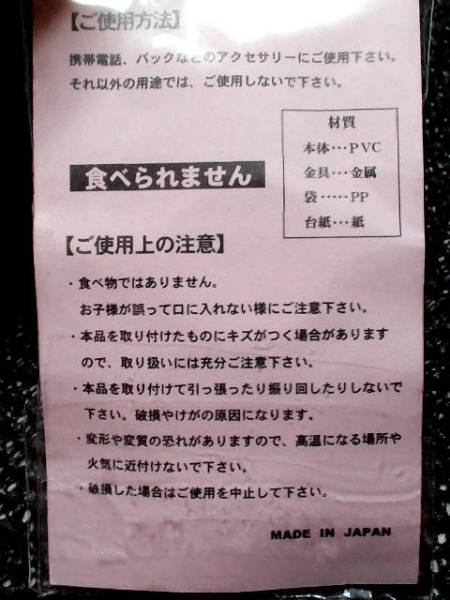 【ご使用方法】
携帯電話、バックなどのアクセサリーにご使用下さい。
それ以外の用途では、ご使用しないで下さい。
材質
本体･･･PVC
金具･･･金属
袋･････PP
台紙･･･紙
食べられません
【ご使用上の注意】
・食べ物ではありません。
お子様が誤って口に入れない様にご注意下さい。
・本品を取り付けたものにキズがつく場合があります
ので、取り扱いには充分ご注意下さい。
・本品を取り付けて引っ張ったり振り回したりしないで
下さい。破損やけがの原因になります。
・変形や変質の恐れがありますので、高温になる場所や
火気に近付けないで下さい。
・破損した場合はご使用を中止して下さい。
MADE IN JAPAN